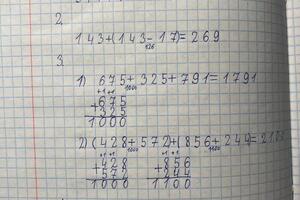 2.
143+(143-17)=269
126
3.
1) 675+325+791=1791
1000
+1 +1
+675
325
1000
2) (428+572)+(856+244)=2100
1000 1100
+1 +1 +1 +1
+428 +856
572 244
1000 1100